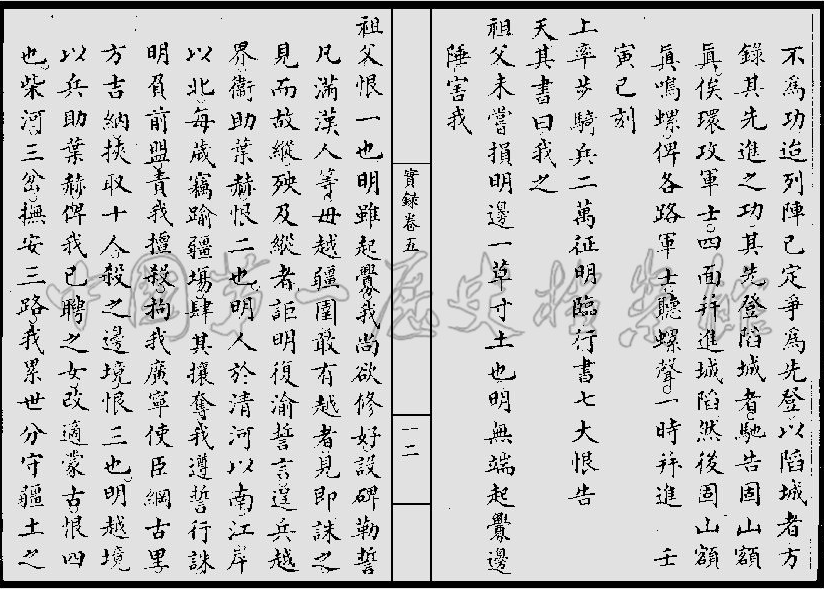 不爲功迨列陣已定爭爲先登以陷城者方
錄其先進之功其先登陷城者馳告固山額
眞俟環攻軍士四面并進城陷然後固山額
眞鳴螺俾各路軍士聽螺聲一時并進 壬
寅巳刻
上率步騎兵二萬征明臨行書七大恨告
天其書曰我之
祖父未嘗損明邊一草寸土也明無端起釁邊
陲害我
實錄卷五
一二
祖父恨一也明雖起釁我尚欲修好設碑勒誓
凡滿漢人等毋越疆圉敢有越者見即誅之
見而故縱殃及縱者詎明復渝誓言逞兵越
界衛助葉赫恨二也明人於清河以南江岸
以北每歲竊踰疆埸肆其攘奪我遵誓行誅
明負前盟責我擅殺拘我廣寧使臣綱古里
方吉納挾取十人殺之邊境恨三也明越境
以兵助葉赫俾我已聘之女改適蒙古恨四
也柴河三岔撫安三路我累世分守疆土之
中國第一歷史檔案館